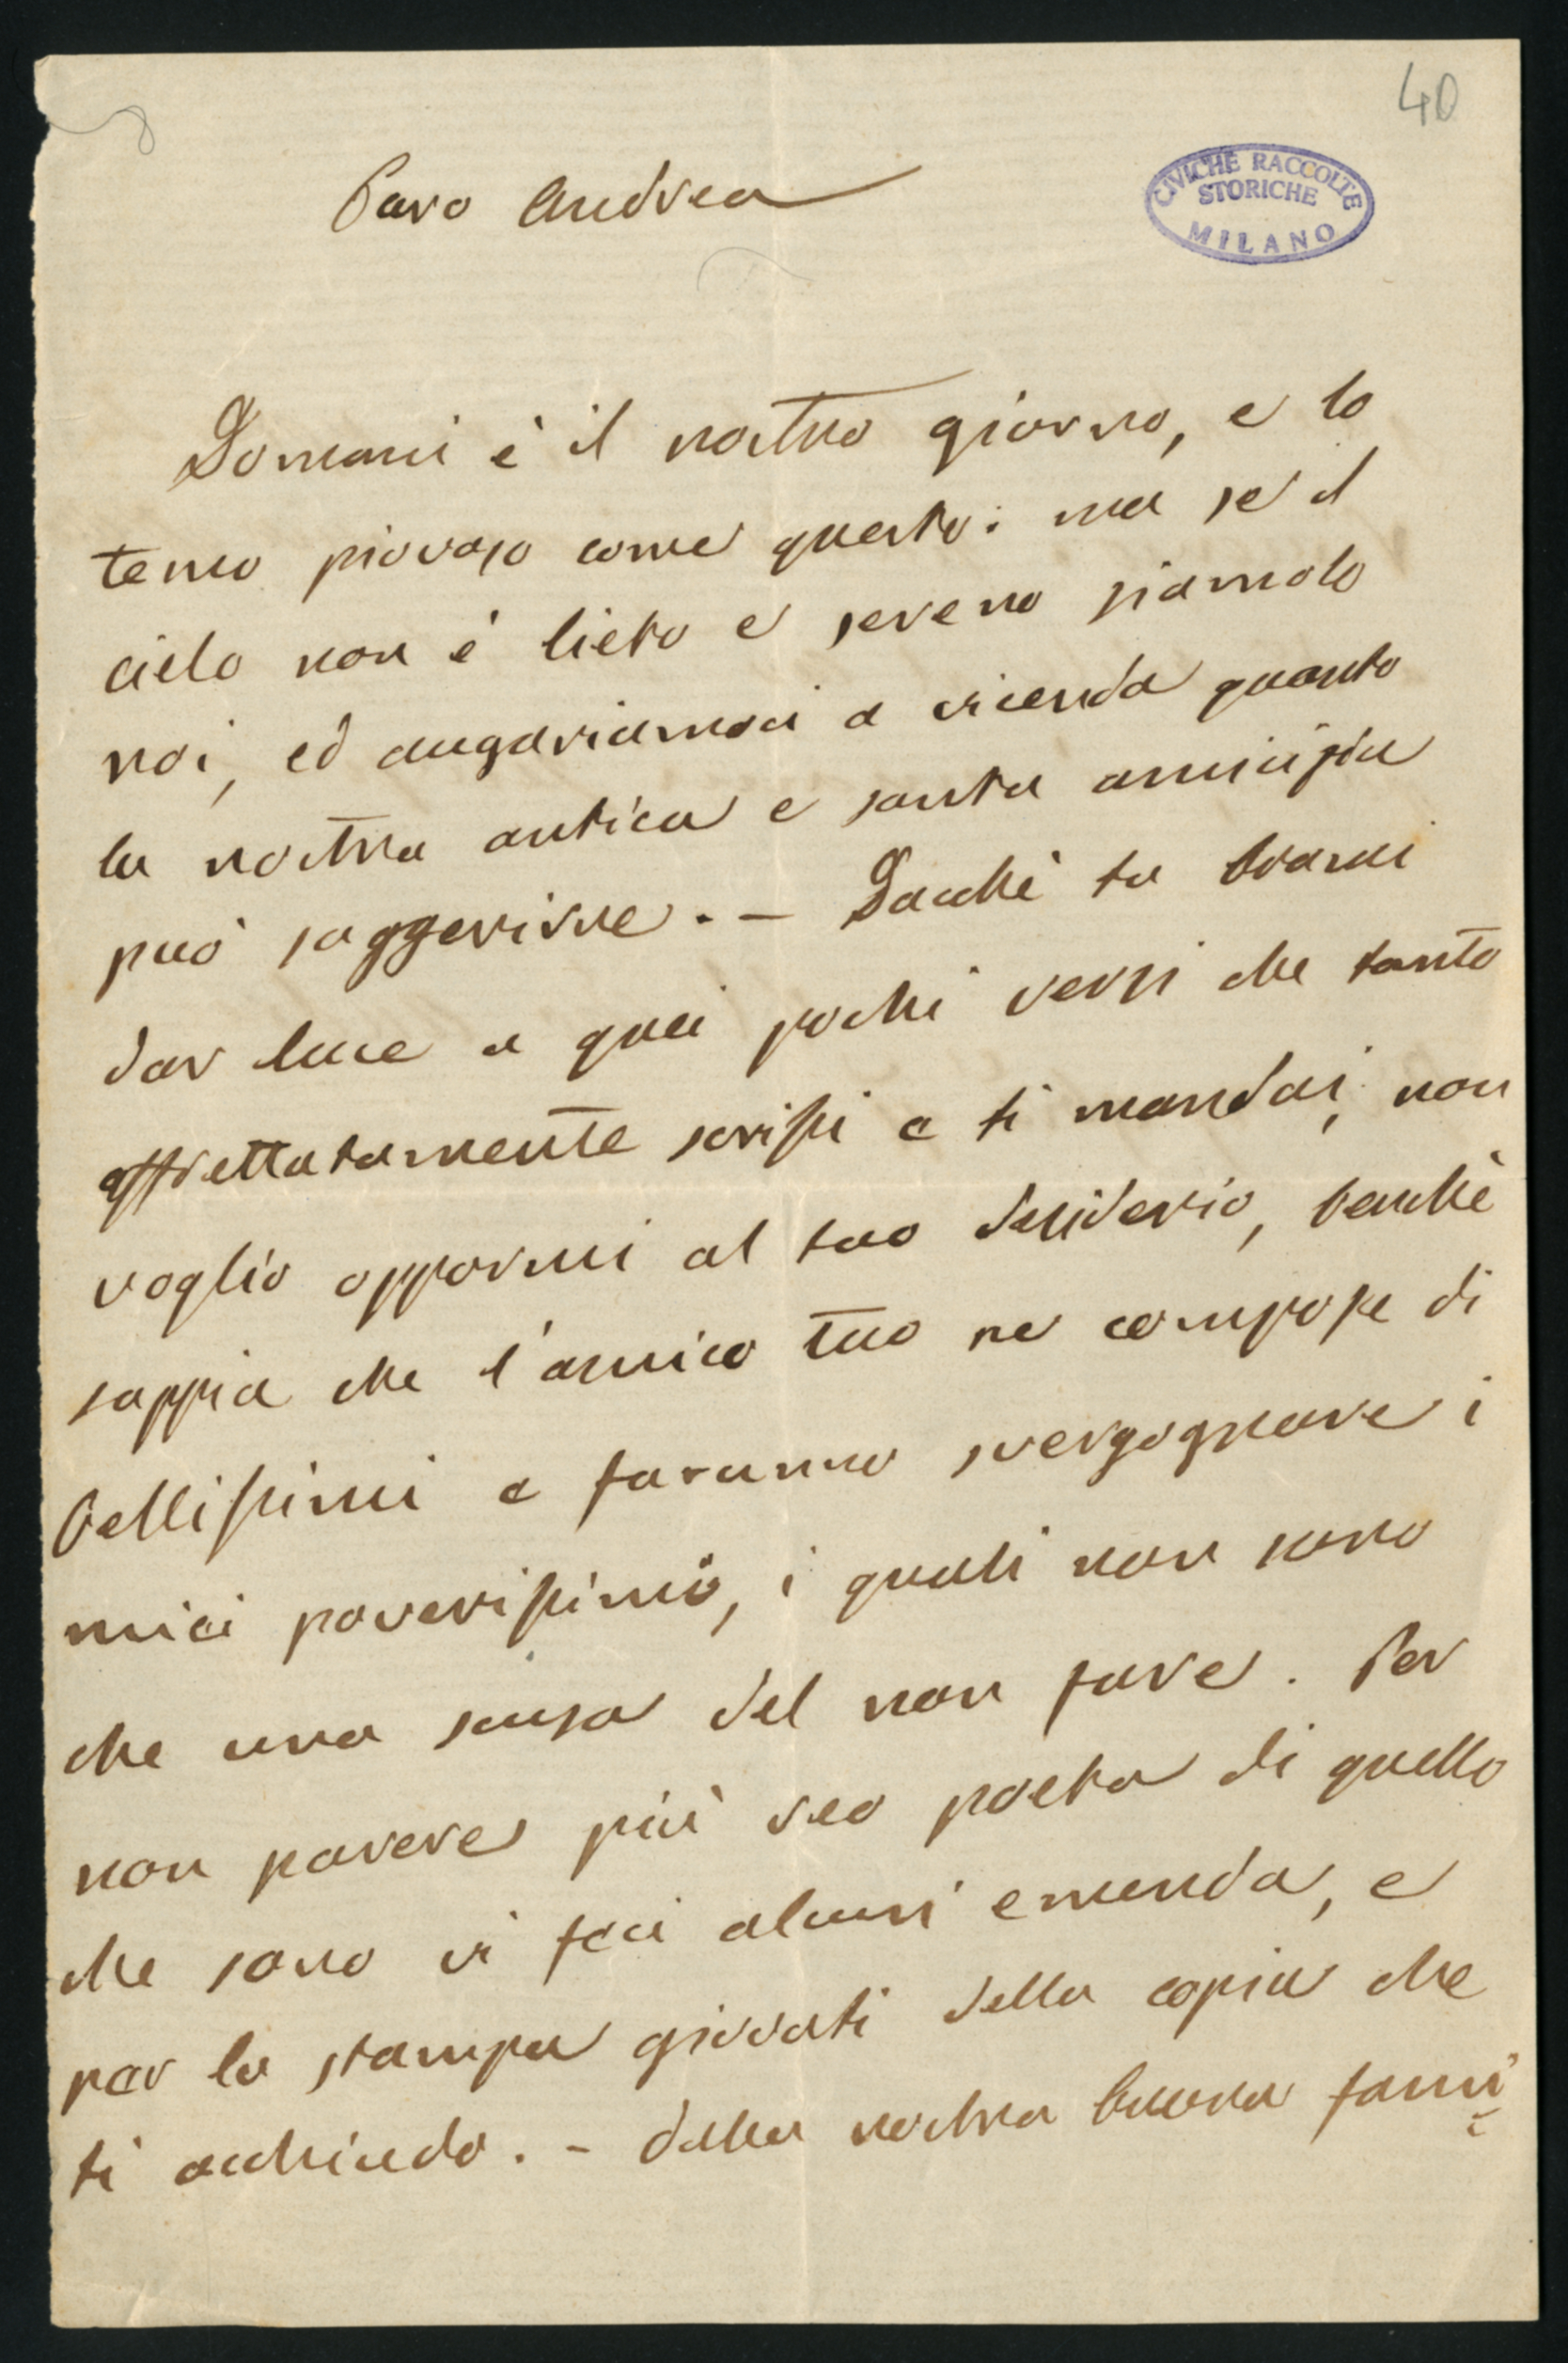 40
CIVICHE RACCOLTE
STORICHE
MILANO
Caro Andrea
Domani è il nostro giorno, e lo
temo piovoso come questo: ma se il
cielo non è lieto e sereno siamolo
noi, ed auguriamoci a vicenda quanto
la nostra antica e santa amicizia
può suggerirne. - Dacchè tu brami
dar luce a quei pochi versi che tanto
affrettatamente scrissi e ti mandai, non
voglio oppormi al tuo desiderio, benchè
sappia che l'amico tuo ne compose di
bellissimi e faranno svergognare i
miei poverissimi, i quali non sono
che una scusa del non fare. Per
non parere più reo poeta di quello
che sono vi feci alcuni emenda, e
per la stampa giovati della copia che
ti acchiudo. - Dalla nostra buona fami